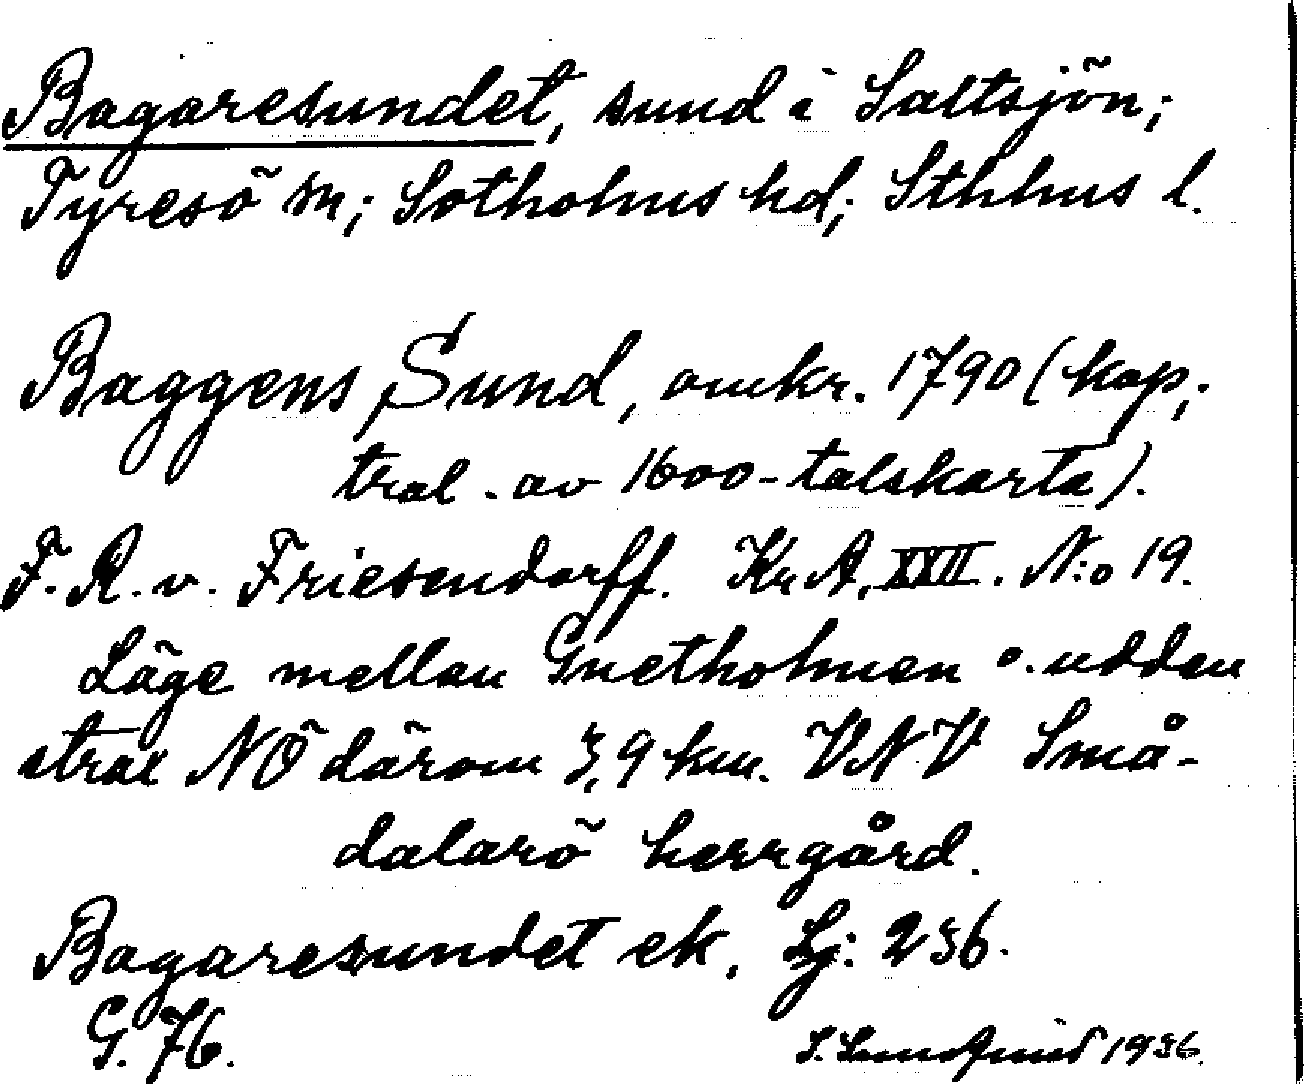 Bagaresundet, sund i Saltsjön;
Tyresö sn; Sotholms hd; Sthlms l.
Baggens Sund, omkr. 1790 (kop.;
trol. av 1600-talskarta).
F. R. v. Friesendorff. Kr A, XXII. N:o 19.
Läge mellan Gnetholmen o. udden
strax NÖ därom 3,9 km. VNV Små-
dalarö herrgård.
Bagaresundet ek. Lj: 236.
G. 76.
S. Lundquist 1936.